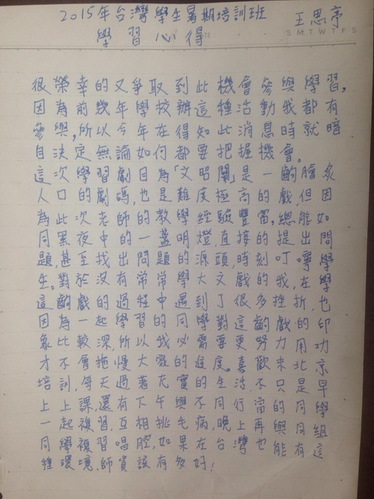 2015年台灣學生暑期培訓班 王思亭
學習心得
S M T W T F S
很榮幸的又爭取到此機會參與學習,
因為前幾年學校辦這種活動我都有
參與,所以今年在得知此消息時就暗
自決定無論如何都要把握機會。
這次學習劇目為「文昭關」是一齣膾炙
人口的戲碼,也是難度極高的戲,但因
為此次老師的教學經驗豐富,總能如
同黑夜中的一盞明燈,直接的提出問
題甚至找出問題的源頭,時刻叮嚀學
生。對於沒有常常學大文戲的我,在學
這齣戲的過程中遇到了很多挫折,也
因為一起學習的同學對這齣戲的印
象比較深,所以我必需要更努力用功
才不會拖慢大夥的進度。喜歡來北京
培訓,每天過著充實的生活不只是早
上上課,還有下午與不同行當的同學
一起複習,互相挑毛病,晚上再與同組
同學複習唱腔,如果在台灣也能有這
種環境,師資該有多好!